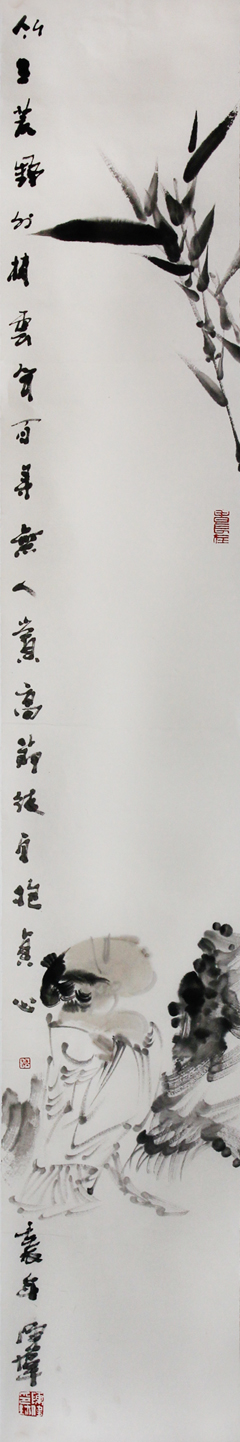 竹生荒野外梢雲聳百尋無人賞高節徒自抱貞心